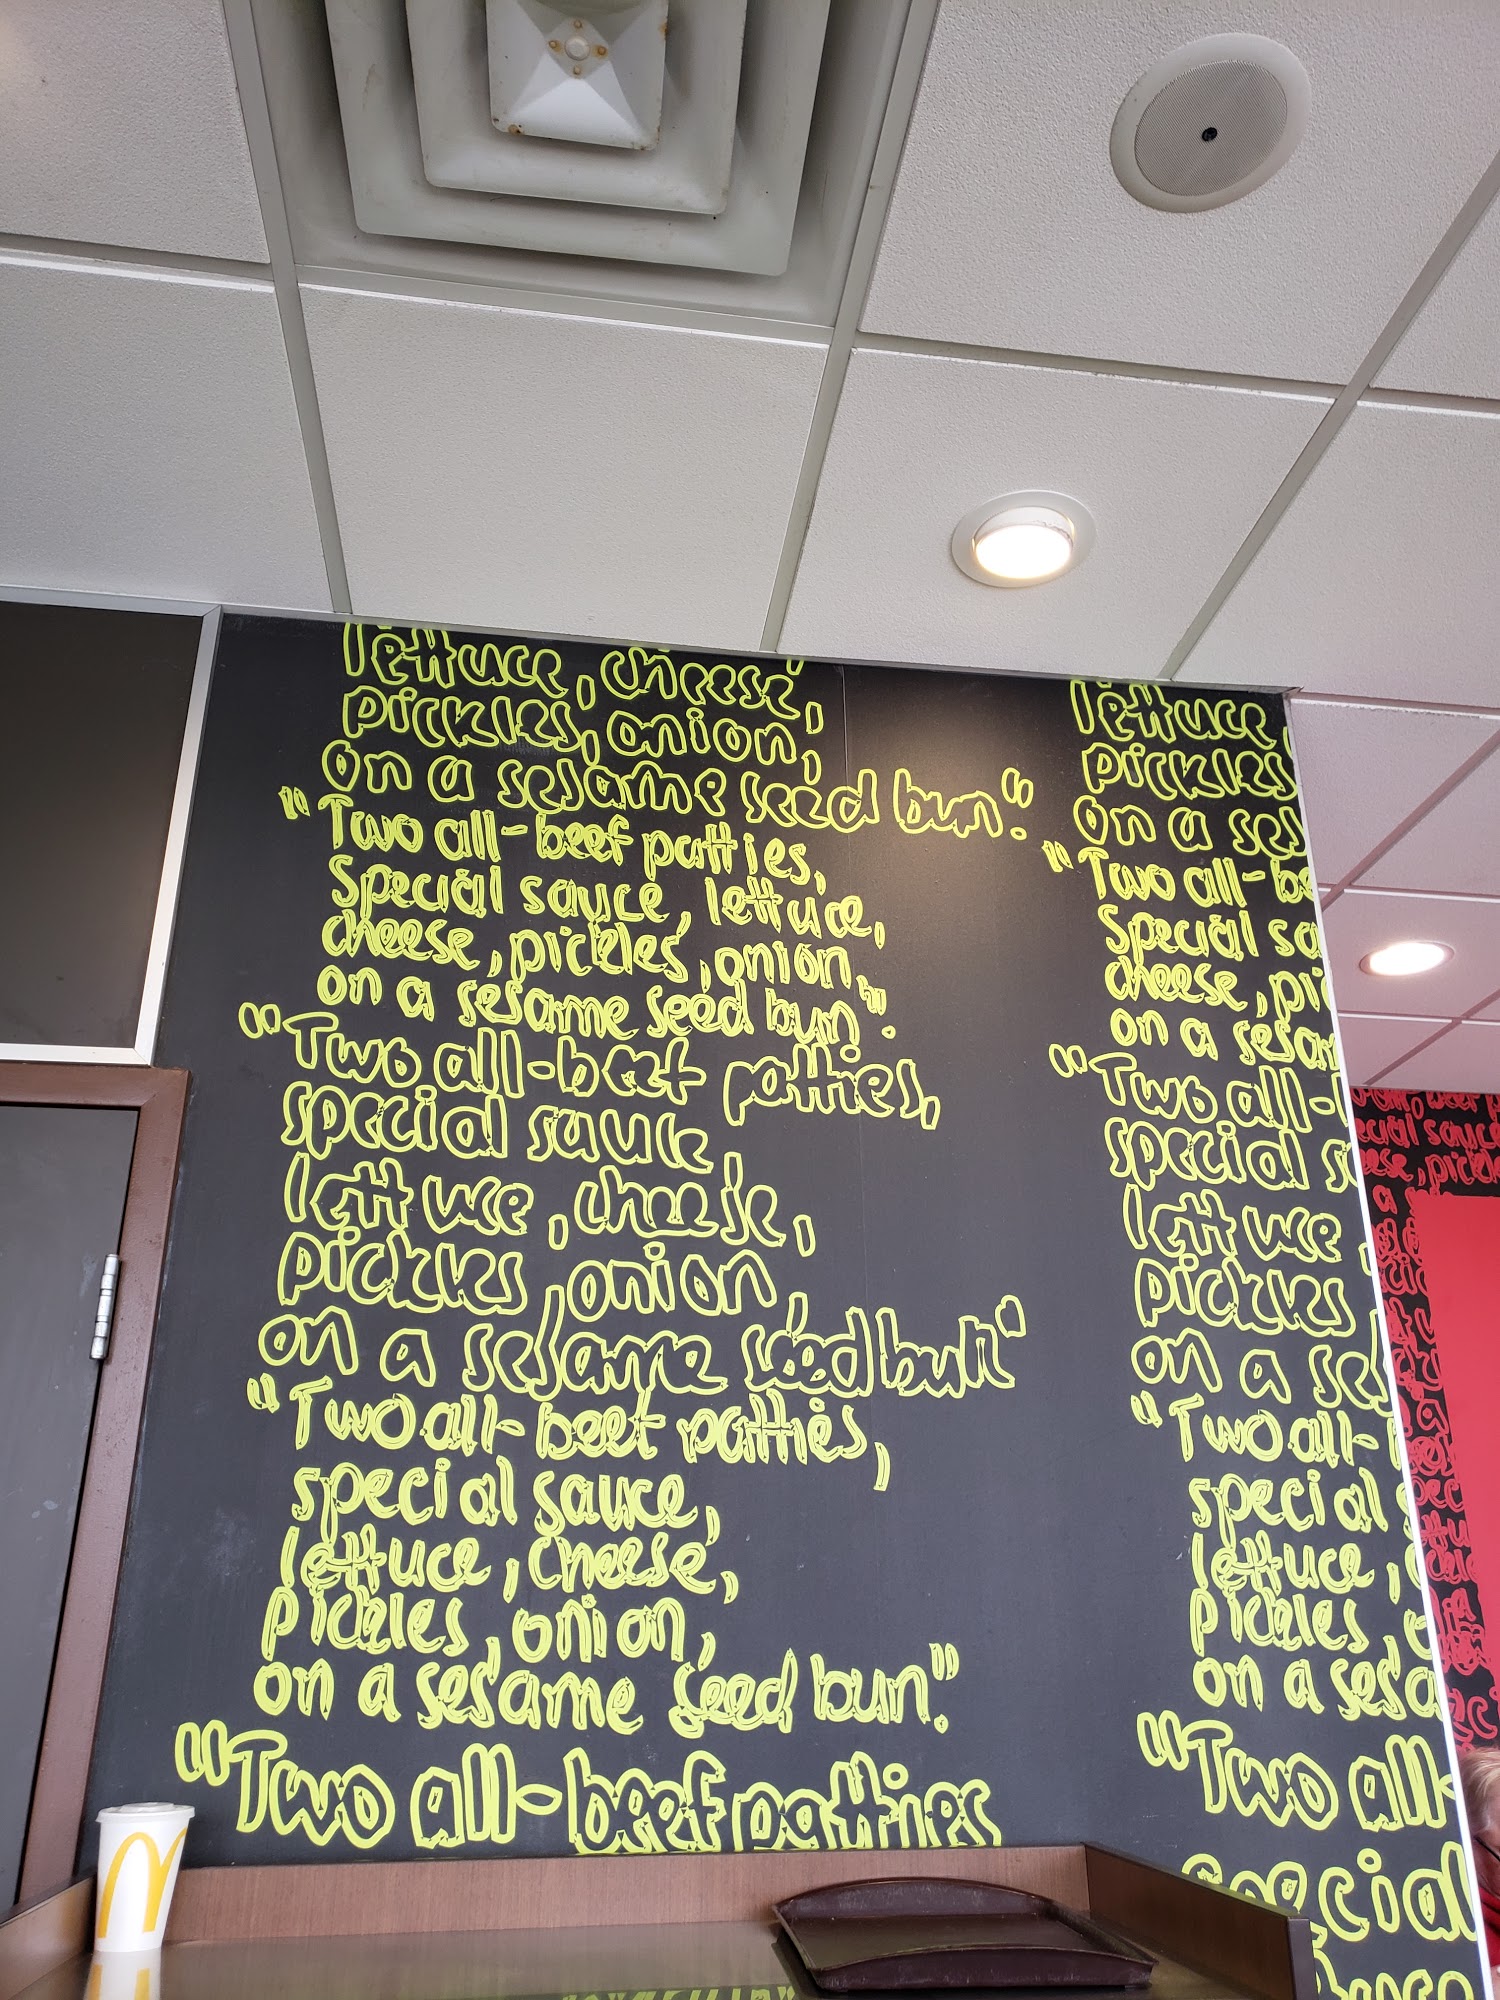 lettuce, cheese,
pickles, onion,
on a sesame seed bun".
"Two all-beef patties,
special sauce, lettuce,
cheese, pickles, onion,
on a sesame seed bun".
"Two all-beef patties,
special sauce,
lettuce, cheese,
pickles, onion,
on a sesame seed bun"
"Two all-beef patties,
special sauce,
lettuce, cheese,
pickles, onion,
on a sesame seed bun".
"Two all-beef patties
lettuce,
pickles
on a ses
"Two all-be
special sa
cheese, pi
on a sesam
"Two all-
special s
lettuce,
pickles
on a ses
"Two all-
special
lettuce,
pickles,
on a sesa
"Two all-
special
beef p
ecial sauce
ese, pickle